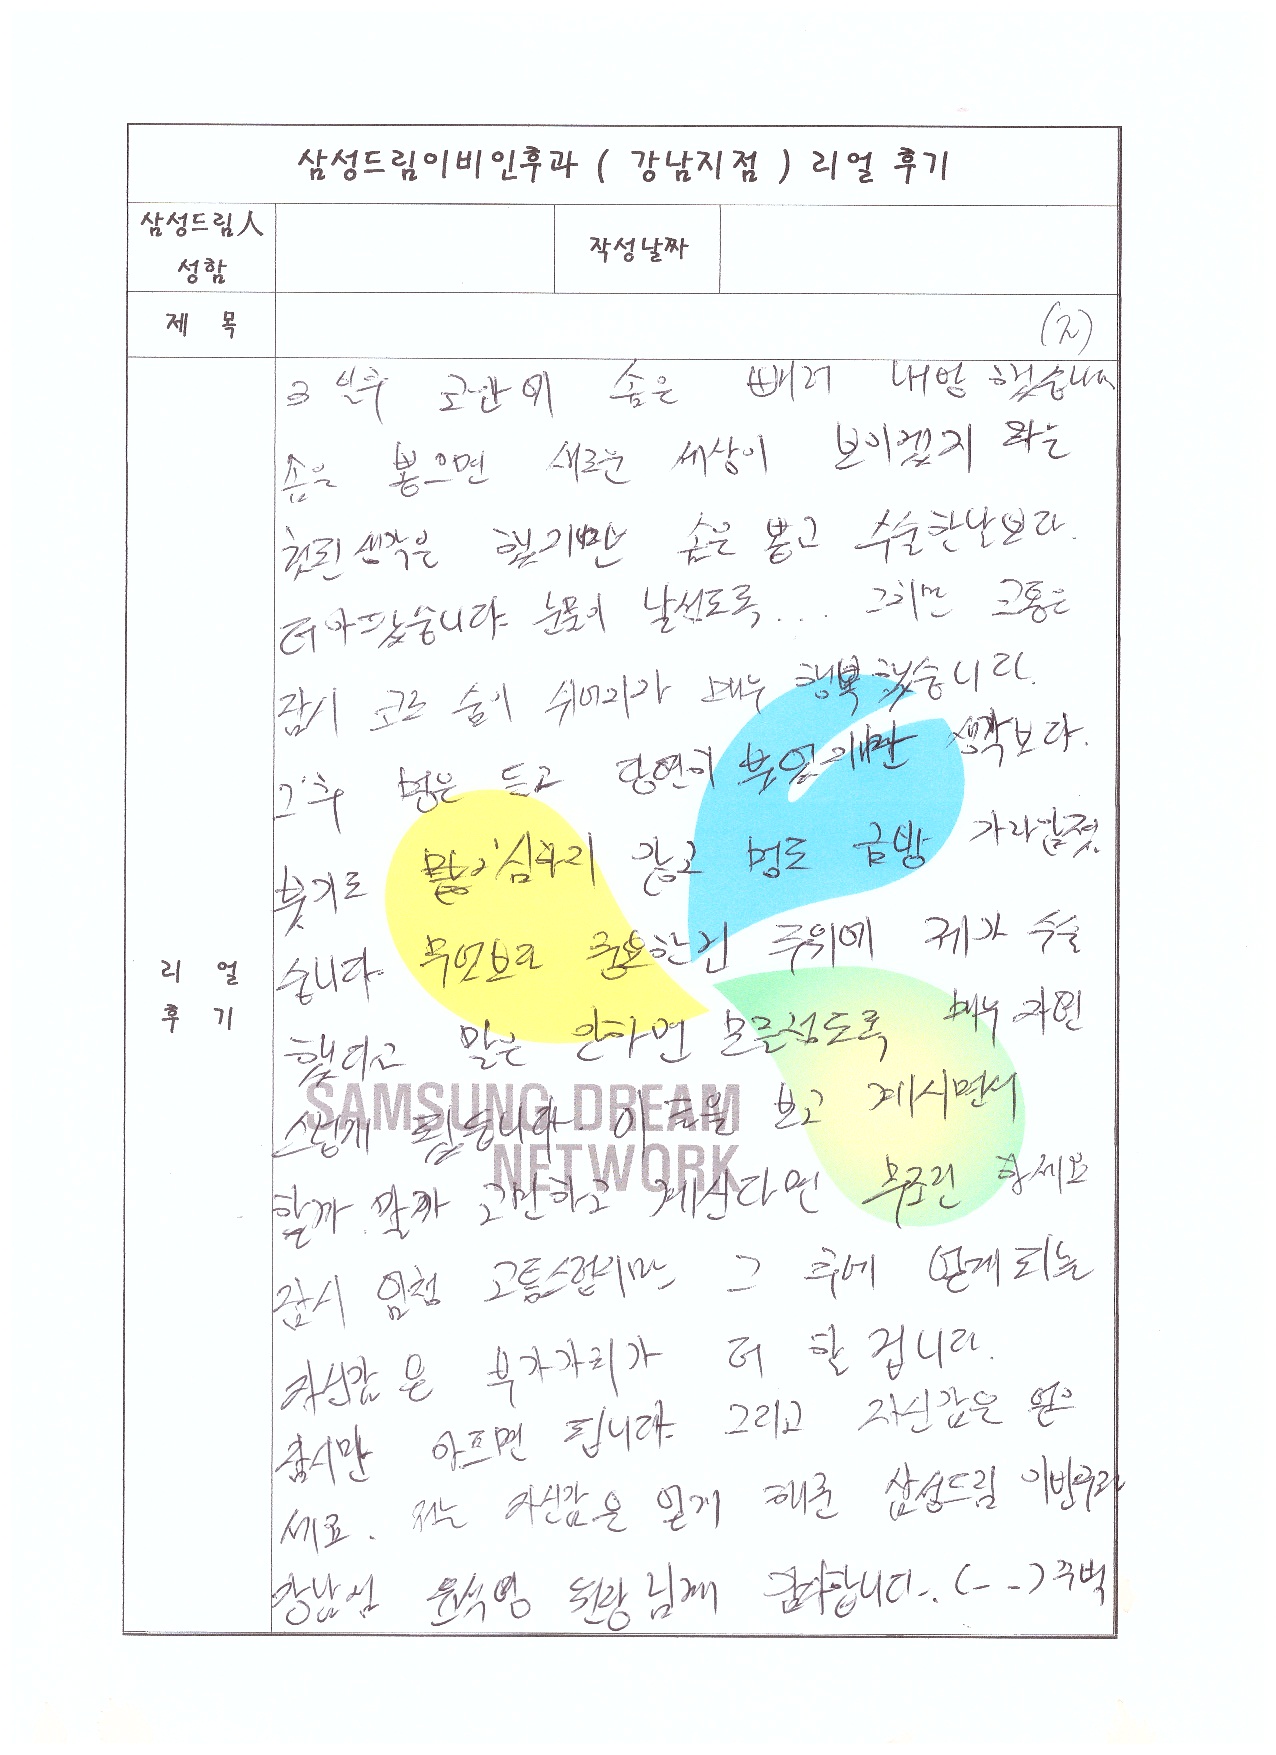 삼성드림이비인후과 ( 강남지점 ) 리얼 후기
삼성드림人
성함
작성날짜
제 목
(2)
3일후 코안에 솜을 빼러 내방 했습니다
솜을 뽑으면 새로운 세상이 보이겠지 라는
헛된 생각을 했지만 솜을 뽑고 수술한날보다
더 아팠습니다 눈물이 날정도록... 그치만 고통은
잠시 코로 숨이 쉬어지가 매우 행복했습니다.
그후 멍은 들고 당연히 부었지만 생각보다.
붓기도 많이 심하지 않고 멍도 금방 가라앉졌
습니다 무엇보다 중요한건 주위에 제가 수술
했다고 말을 안하면 모를정도록 매우 자연
스럽게 됬습니다. 이 글을 보고 계시면서
할까 말까 고민하고 계신다면 무조건 하세요
잠시 엄청 고통스럽지만 그 후에 얻게 되는
자신감은 부가가치가 더 할 겁니다.
잠시만 아프면 됩니다 그리고 자신감을 얻으
세요. 저는 자신감을 얻게 해준 삼성드림 이비인후과
강남점 윤석영 원장님께 감사합니다. (- -) 꾸벅
리 얼
후 기
SAMSUNG DREAM
NETWORK